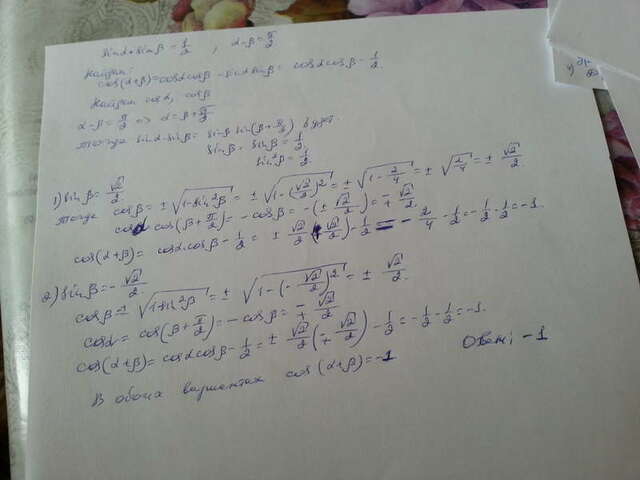 sinα·sinβ = 1/2 , α-β = π/2
Найдем:
cos(α+β) = cosα cosβ - sinα sinβ = cosα cosβ - 1/2
Найдем cosα, cosβ
α-β = π/2 => α = β + π/2
тогда sinα·sinβ = sinβ sin(β + π/2) будет
sinβ · sinβ = 1/2
sin²β = 1/2
1) sinβ = √2/2
тогда cosβ = ± √(1-sin²β) = ± √(1-(√2/2)²) = ± √(1-2/4) = ± √(2/4) = ± √2/2
cosα cos(β + π/2) = -cosβ = -(± √2/2) = ∓ √2/2
cos(α+β) = cosα·cosβ - 1/2 = ± √2/2 (∓ √2/2) - 1/2 = - 2/4 - 1/2 = -1/2 - 1/2 = -1
2) sinβ = - √2/2
cosβ = ± √(1-sin²β) = ± √(1-(-√2/2)²) = ± √2/2
cosα = cos(β + π/2) = -cosβ = ∓ √2/2
cos(α+β) = cosα cosβ - 1/2 = ± √2/2 (∓ √2/2) - 1/2 = -1/2 - 1/2 = -1.
В обоих вариантах cos(α+β) = -1
Ответ: -1